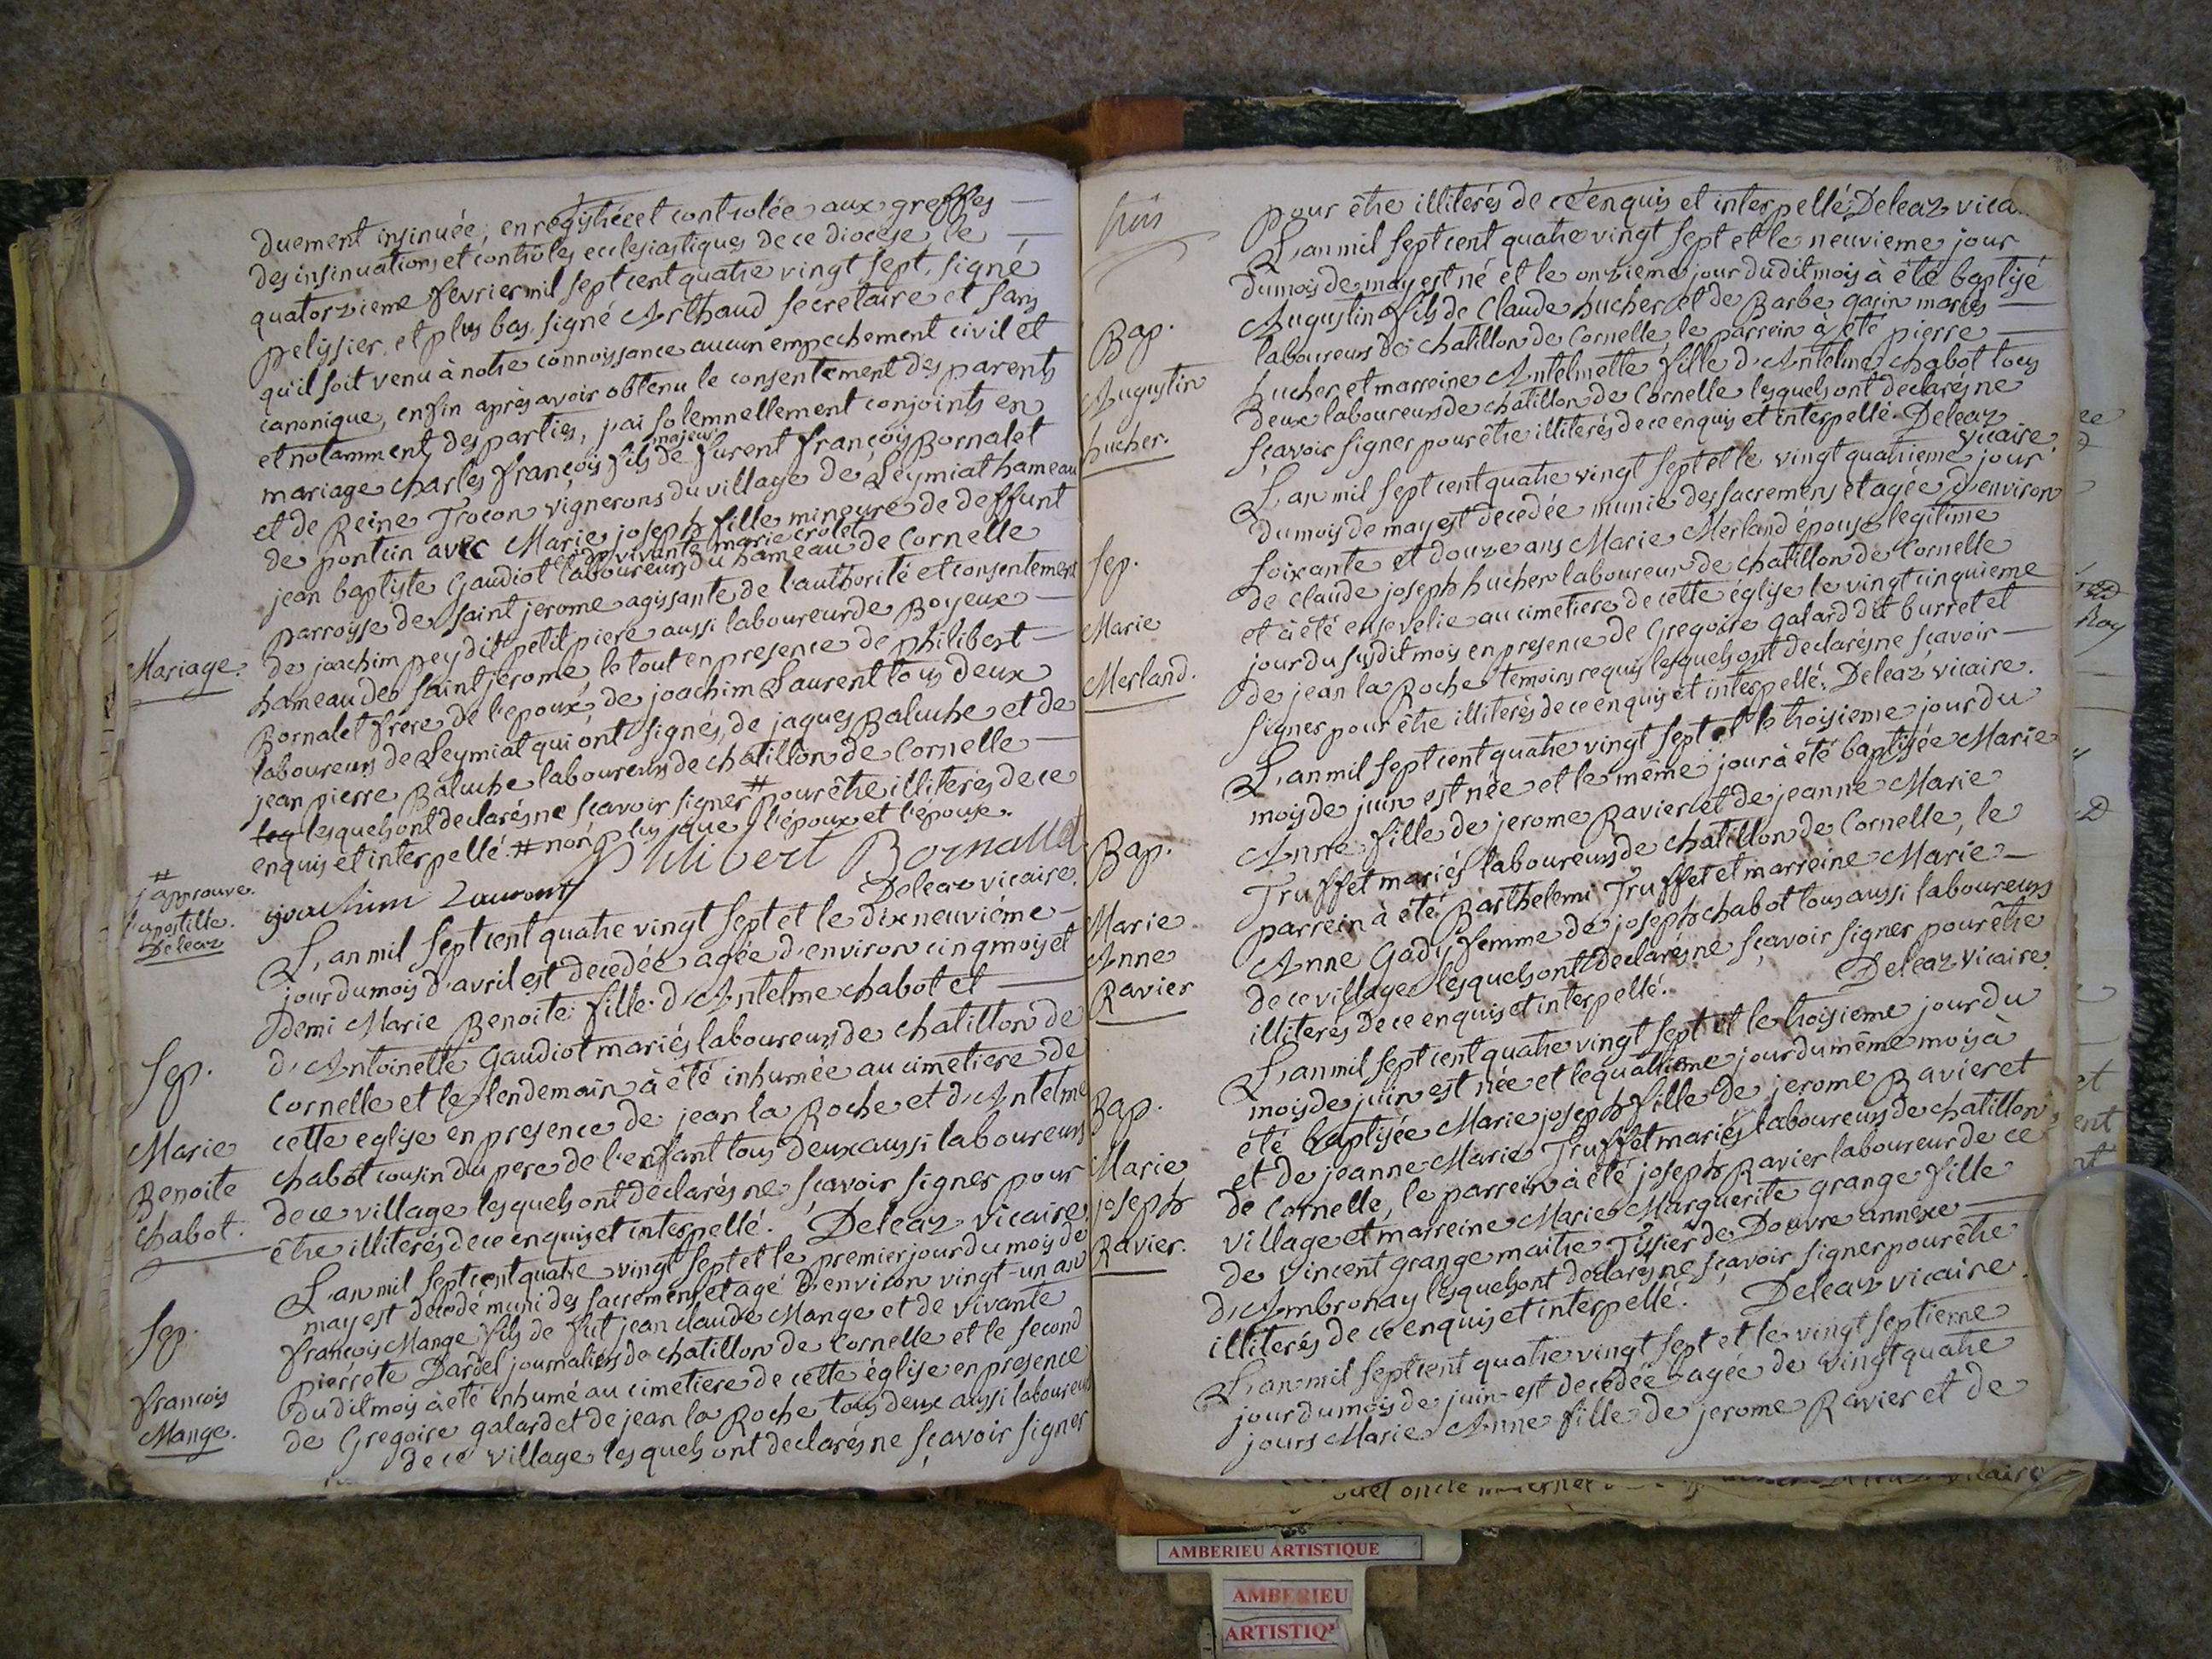 duement insinuée, enregistrée et controlée aux greffes
des insinuations et contrôles ecclesiastiques de ce diocese le
quatorzieme fevrier mil sept cent quatre vingt sept, signé
pelissier, et plus bas, signé Arthaud secretaire et sans
qu'il soit venu à notre connoissance aucun empechement civil et
canonique, enfin après avoir obtenu le consentement des parents
et notamment des parties, j'ai solemnellement conjoints en
mariage charles françois fils majeur de furent françois Bornalet
et de Reine Trocon vignerons du village de Leymiat hameau
de poncin avec Marie joseph fille mineure de deffunt
jean baptiste Gaudiot et de vivante marie crolet laboureurs du hameau de Cornelle
parroisse de saint jerome agissante de l'authorité et consentement
Mariage. de joachim pey dit petit piere aussi laboureur de Boyeux
hameau de saint jerome, le tout en presence de philibert
Bornalet frere de l'epoux, de joachim Laurent tous deux
laboureurs de Leymiat qui ont signés, de jaques Baluche et de
jean pierre Baluche laboureurs de chatillon de Cornelle
lesquels ont declarés ne sçavoir signer # pour être illiterés de ce
enquis et interpellé. # non plus que l'époux et l'épouse.
# j'approuve l'apostille. Deleaz
philibert Bornallet
joachim Laurent Deleaz vicaire.
L'an mil sept cent quatre vingt sept et le dix neuvième
jour du mois d'avril est decedée agée d'environ cinq mois et
demi Marie Benoite fille d'Antelme chabot et
Sep. d'Antoinette Gaudiot mariés laboureurs de chatillon de
Cornelle et le lendemain à été inhumée au cimetiere de
cette eglise en presence de jean la Roche et d'Antelme
Marie chabot cousin du pere de l'enfant tous deux aussi laboureurs
Benoite de ce village lesquels ont declarés ne sçavoir signer pour
chabot. être illiterés de ce enquis et interpellé. Deleaz vicaire
L'an mil sept cent quatre vingt sept et le premier jour du mois de
may est decedé muni des sacremens et agé d'environ vingt-un an
Sep. françois Mange fils de fut jean claude Mange et de vivante
pierrete Dardel journaliers de chatillon de Cornelle et le second
françois du dit mois à été inhumé au cimetiere de cette église en presence
Mange. de Gregoire galard et de jean la Roche tous deux aussi laboureurs
de ce village lesquels ont declarés ne sçavoir signer
trois
pour être illiterés de ce enquis et interpellé. Deleaz vica
L'an mil sept cent quatre vingt sept et le neuvieme jour
du mois de may est né et le onzieme jour du dit mois à été baptisé
Augustin fils de Claude hucher et de Barbe garin mariés
Bap. laboureurs de chatillon de Cornelle, le parrein à été pierre
Augustin hucher et marreine Antelmette fille d'Antelme chabot tous
deux laboureurs de chatillon de Cornelle lesquels ont declarés ne
hucher. sçavoir signer pour être illiterés de ce enquis et interpellé. Deleaz
vicaire.
L'an mil sept cent quatre vingt sept et le vingt quatrieme jour
du mois de may est decedée munie des sacremens et agée d'environ
Sep. soixante et douze ans Marie Merland épouse legitime
de claude joseph hucher laboureur de chatillon de Cornelle
Marie et à été ensevelie au cimetiere de cette église le vingt cinquieme
jour du susdit mois en presence de Gregoire galard dit burret et
Merland. de jean la Roche temoins requis lesquels ont declarés ne sçavoir
signer pour être illiterés de ce enquis et interpellé. Deleaz vicaire.
L'an mil sept cent quatre vingt sept et le troisieme jour du
mois de juin est née et le même jour à été baptisée Marie
Anne fille de jerome Ravier et de jeanne Marie
Bap. Truffet mariés laboureurs de chatillon de Cornelle, le
parrein à été Barthelemi Truffet et marreine Marie
Marie Anne Gady femme de joseph chabot tous aussi laboureurs
Anne de ce village lesquels ont declarés ne sçavoir signer pour être
Ravier illiterés de ce enquis et interpellé. Deleaz vicaire.
L'an mil sept cent quatre vingt sept et le troisieme jour du
mois de juin est née et le quatrieme jour du même mois à
Bap. été baptisée Marie joseph fille de jerome Ravier et
et de jeanne Marie Truffet mariés laboureurs de chatillon
Marie de Cornelle, le parrein à été joseph Ravier laboureur de ce
joseph village et marreine Marie Marguerite grange fille
Ravier. de vincent grange maitre Tissier de Douvre annexe
d'Ambronay lesquels ont declarés ne sçavoir signer pour être
illiterés de ce enquis et interpellé. Deleaz vicaire
L'an mil sept cent quatre vingt sept et le vingt septieme
jour du mois de juin est decedée agée de vingt quatre
jours Marie Anne fille de jerome Ravier et de
AMBERIEU ARTISTIQUE
AMBERIEU
ARTISTIQ